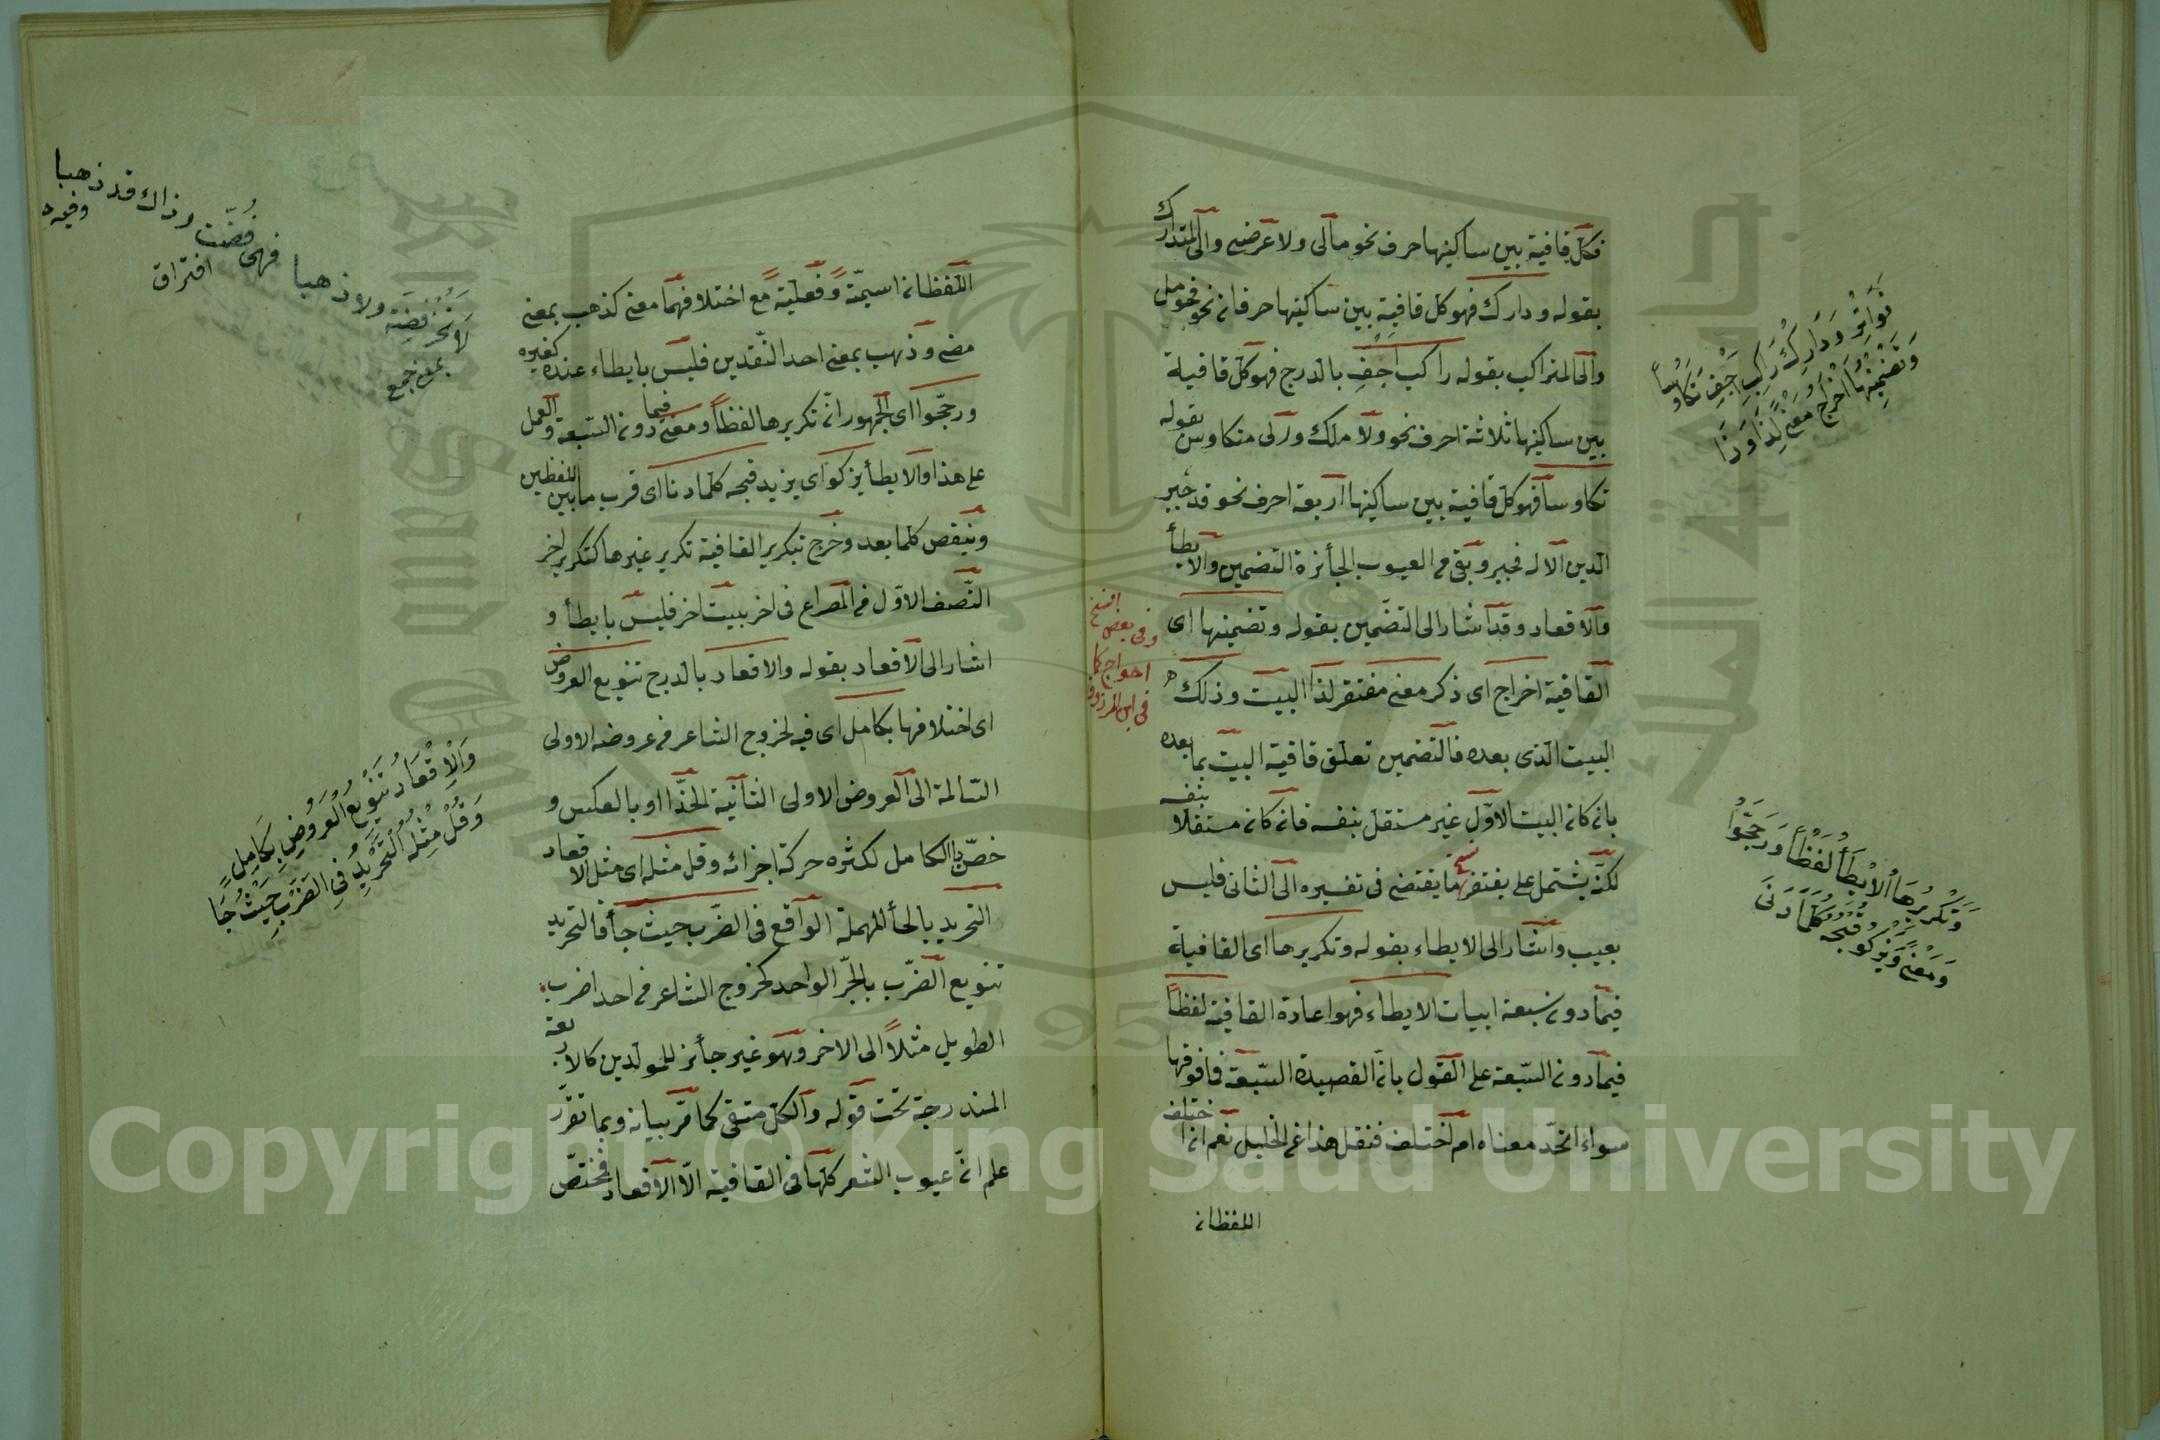 فكل قافية بين ساكنيها حرف نحو مالى ولا عرضى والى المتدارك
بقوله ودارك فهو كل قافية بين ساكنيها حرفان نحو فحومل
والى المتراكب بقوله راكب اجف بالدرج فهو كل قافية
بين ساكنيها ثلاثة احرف نحو ولا ملك ورلى متكاوس بقوله
تكاوسا فهو كل قافية بين ساكنيها اربعة احرف نحو قد جبر
الدين الاله فجبر وبقى من العيوب الجأئزة التضمين والايطأ
والاقعاد وقد اشار الى التضمين بقوله وتضمينها اى
القافية اخراج اى ذكر معنى مفتقر لذا البيت وذلك
البيت الذى بعده فالتضمين تعلق قافية البيت بما بعده
بان كان البيت الاول غير مستقل بنفسه فان كان مستقلا بنفسه
لكنه يشتمل على ما يقتضى يفتقر فى تفسيره الى الثانى فليس
بعيب واشار الى الايطاء بقوله وتكريرها اى القافية
فيما دون سبعة ابيات الايطاء فهو اعادة القافية لفظاً
فيما دون السبعة على القول بان القصيدة السبعة فما فوقها
سواء اتحد معناه ام اختلف فنقل هذا عن الخليل نعم ان اختلف
اللفظان
وفى بعض النسخ
احواج كما
فى ابن المرزوق
تَوَاتِرٌ وَدَارِكْ رَاكِبِ اجْفِ تَكَاوُساً
وَتَضْمِينُهَا اخْرَاجُ مَعْنىً لِذَا وَذَا
وَتَكْرِيرُهَا الايْطَأُ لَفْظاً وَرَجَّحُوا
وَمَعْنىً وَيَزْكُو قُبْحُهُ كُلَّمَا دَنَى
اللفظان اسميّة وفعليّة مع اختلافهما معنى كذهب بمعنى
مضى وذهب بمعنى احد النقدين فليس بايطاء عنده كغيره
ورجّحوا اى الجمهور انّ تكريرها لفظاً ومعنى فيما دون السبعة والعمل
على هذا والايطأ يزكو اى يزيد قبحه كلما دنا اى قرب ما بين اللفظين
وينقص كلما بعد وخرج بتكرير القافية تكرير غيرها كتكرير اخر
النصف الاول من المصراع فى اخر بيت اخر فليس بايطأ و
اشار الى الاقعاد بقوله والاقعاد بالدرج تنويع العروض
اى اختلافها بكامل اى فيه لخروج الشاعر من عروضه الاولى
السالمة الى العروض الاولى الثانية الحذّا او بالعكس و
خصّ بالكامل لكثره حركة اجزائه وقل مثله اى مثل الاقعاد
التحريد بالحأ المهملة الواقع فى الضرب حيث جأ فالتحريد
تنويع الضرب بالبحر الواحد كخروج الشاعر من احد اضرب
الطويل مثلاً الى الاخر وهو غير جأئز للمولدين كالاربعة
المندرجة تحت قوله والكل متقى كما مرّ بيانه وبما تقرّر
علم انّ عيوب الشعر كلها فى القافية الّا الاقعاد فمختصّ
فهى فضّت وذاك قد ذهبا
ولا ذهبا
وفيه
افتراق
بمعنى جمع
وَالاِقْعَادُ تَنْوِيعُ الْعَرُوضِ بِكَامِلٍ
وَقُلْ مِثْلُهُ التَّحْرِيدُ فِى الضَّرْبِ حَيْثُ جَا
جامعة الملك سعود
King Saud University
1957
Copyright © King Saud University